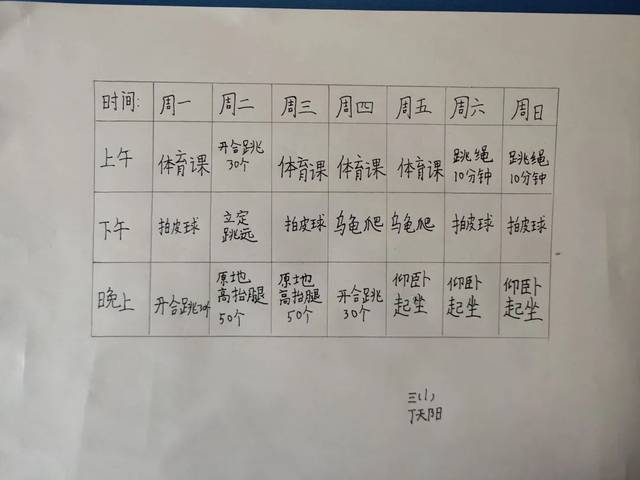 时间: 周一 周二 周三 周四 周五 周六 周日
上午 体育课 开合跳30个 体育课 体育课 体育课 跳绳10分钟 跳绳10分钟
下午 拍皮球 立定跳远 拍皮球 乌龟爬 乌龟爬 拍皮球 拍皮球
晚上 开合跳30个 原地高抬腿50个 原地高抬腿50个 开合跳30个 仰卧起坐 仰卧起坐 仰卧起坐
三(1)
丁天阳